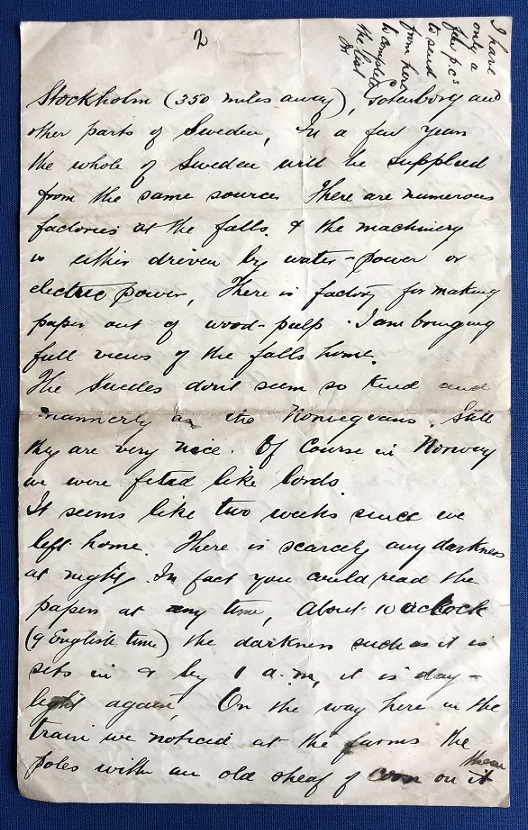 2
I have
only a
few p.c's
to send
from here
to complete
the last
Stockholm (350 miles away), Goteborg and
other parts of Sweden, In a few years
the whole of Sweden will be supplied
from the same source. There are numerous
factories at the falls. & the machinery
is either driven by water-power or
electric power, There is factory for making
paper out of wood-pulp. I am bringing
full views of the falls home.
The Swedes dont seem so kind and
mannerly as the Norwegians. Still
they are very nice. Of course in Norway
we were feted like lords.
It seems like two weeks since we
left home. There is scarcely any darkness
at nights. In fact you could read the
papers at any time, About 10 oclock
(9 English time) the darkness such as it is
sets in & by 1 a.m, it is day-
light again, On the way here in the
train we noticed at the farms the
poles with an old sheaf of corn on it